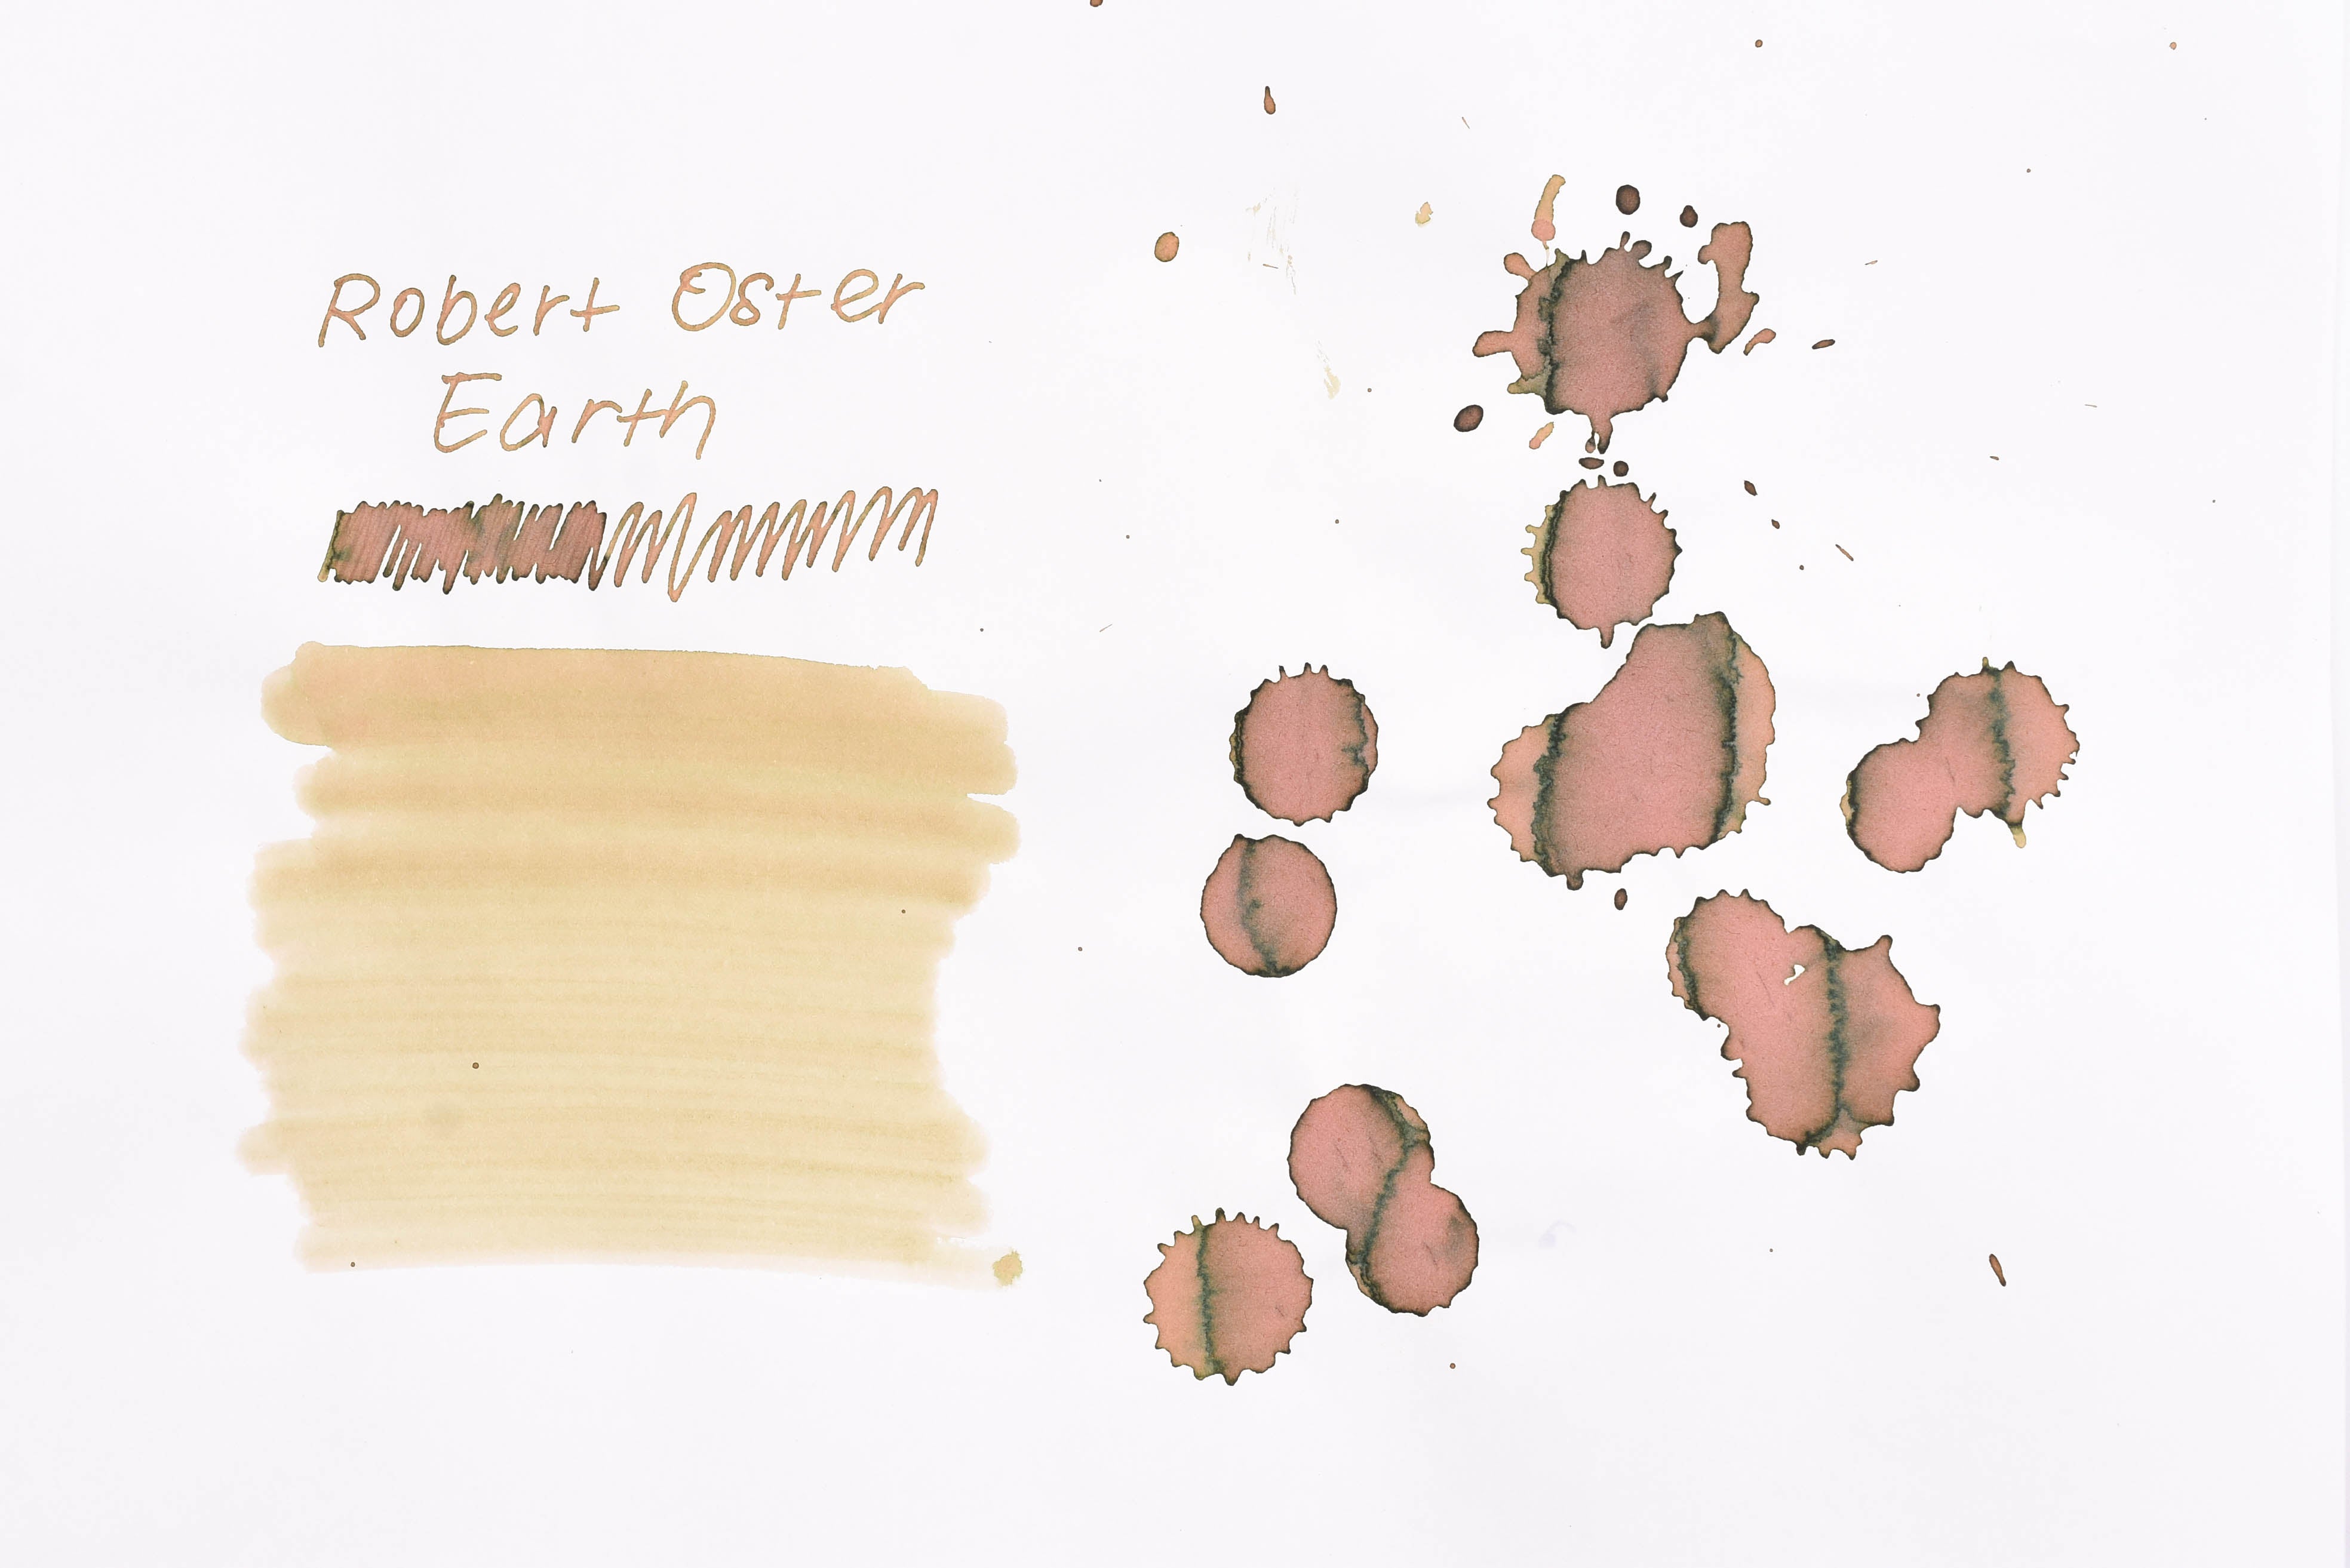 Robert Oster
Earth